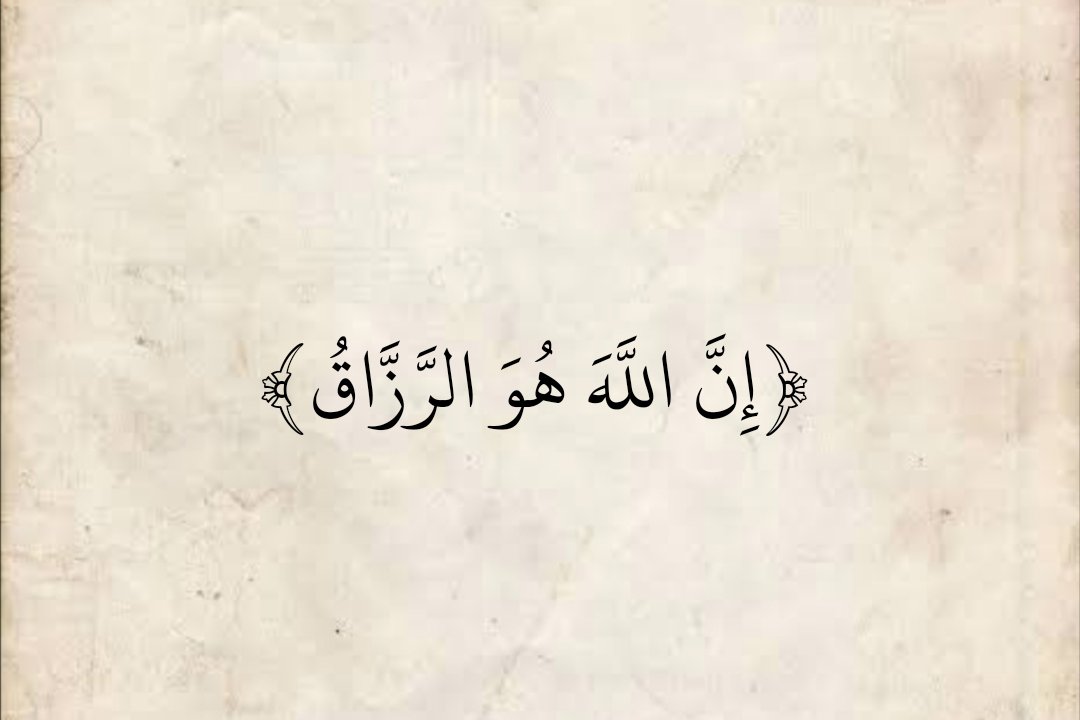 ﴿إِنَّ اللَّهَ هُوَ الرَّزَّاقُ﴾